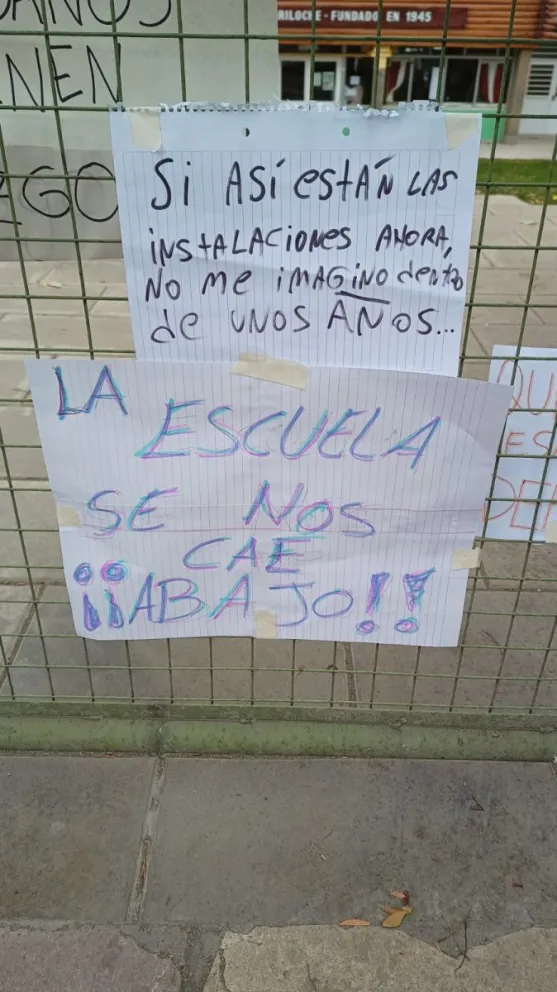 NEN
EGO
RILOCHE - FUNDADO EN 1945
Si ASí estÁN LAS
iNStALACioNES AHORA,
NO me iMAGiNO dentro
de UNOS AÑOS...
LA
ESCUELA
SE NOS
CAE
¡¡ABAJO!!
QU
ES